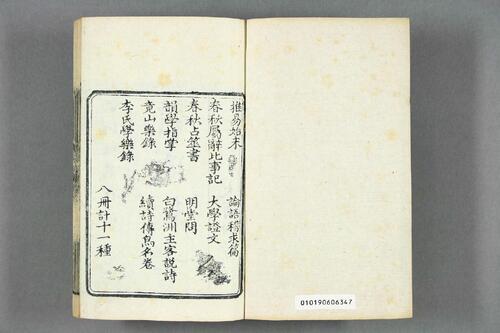 推易始末
論語稽求篇
春秋屬辭比事記
大學證文
春秋占筮書
明堂問
韻學指掌
白鷺洲主客說詩
竟山樂錄
續詩傳鳥名卷
李氏學樂錄
八冊計十一種
010190606347